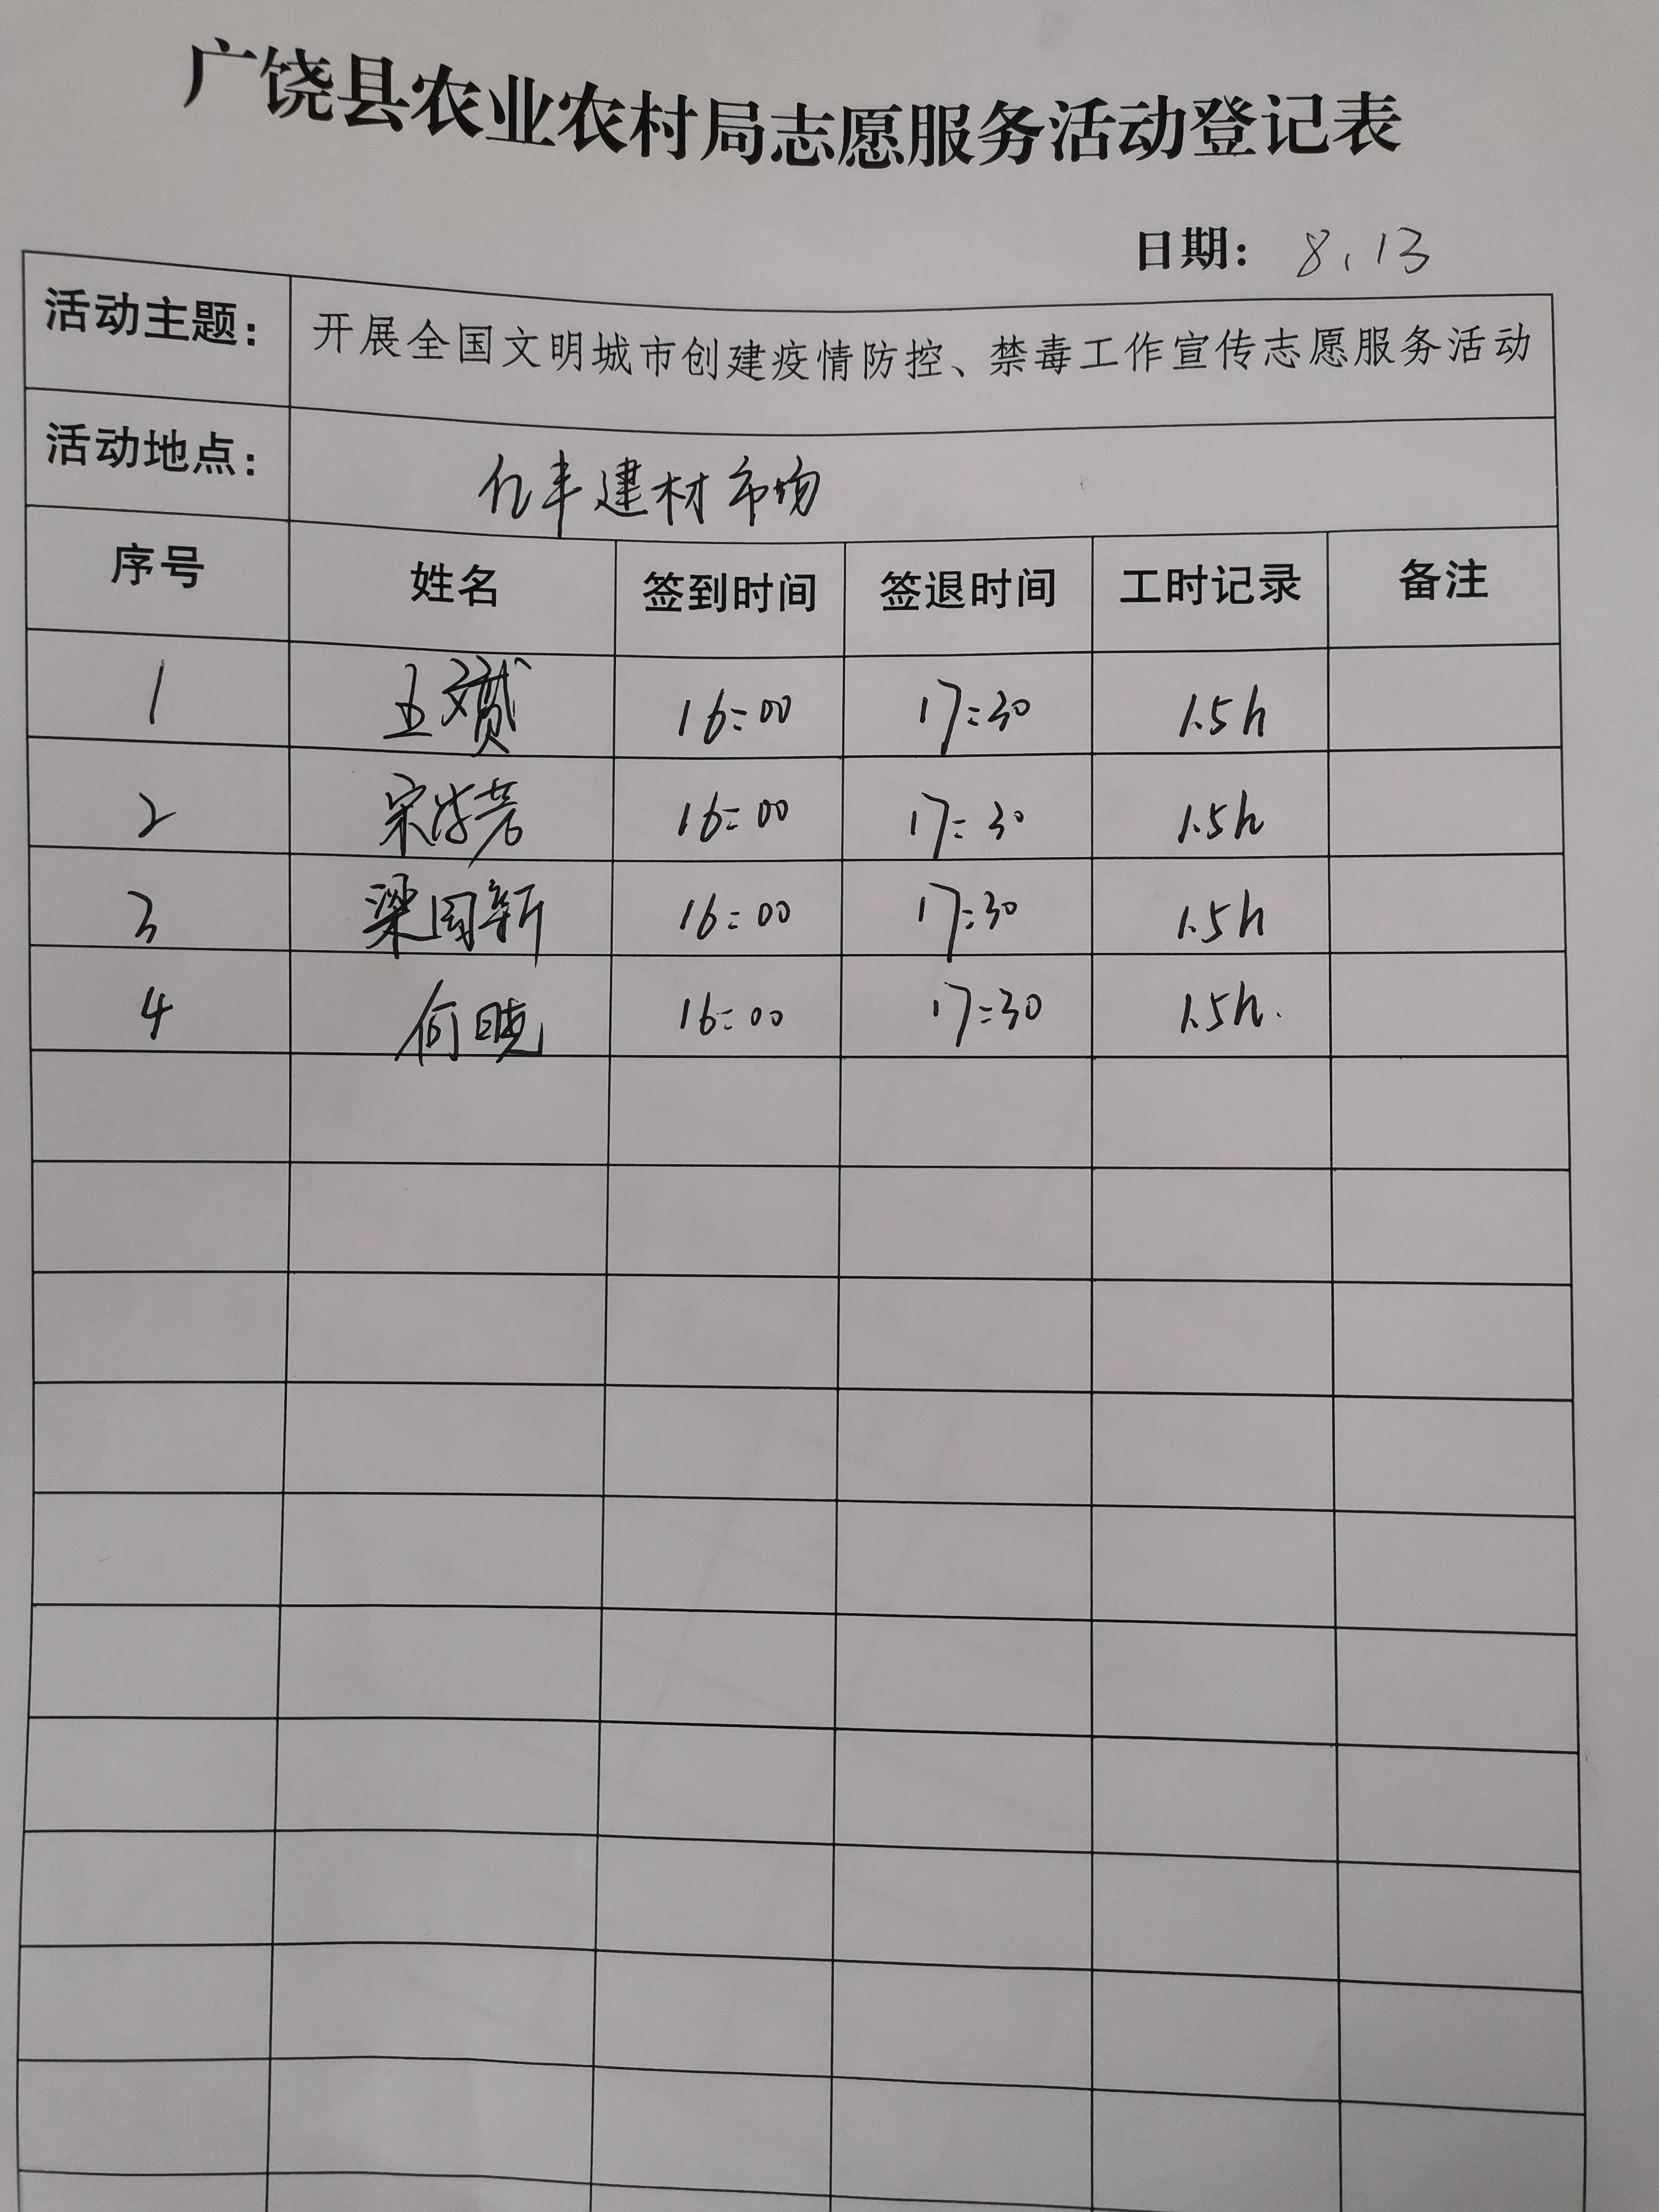 广饶县农业农村局志愿服务活动登记表
日期: 8.13
活动主题: 开展全国文明城市创建疫情防控、禁毒工作宣传志愿服务活动
活动地点: 亿丰建材市场
序号 姓名 签到时间 签退时间 工时记录 备注
1 16:00 17:30 1.5h
2 16:00 17:30 1.5h
3 梁国新 16:00 17:30 1.5h
4 何晓 16:00 17:30 1.5h.